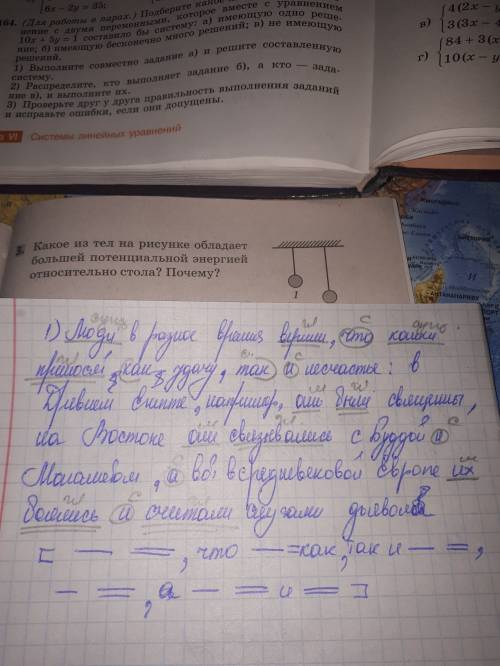 6x − 2y = 35;
164. (Для работы в парах.) Подберите какое-
нение с двумя переменными, которое вместе с уравнением
10x + 5y = 1 составило бы систему: а) имеющую одно реше-
ние; б) имеющую бесконечно много решений; в) не имеющую
решений.
1) Выполните совместно задание а) и решите составленную
систему.
2) Распределите, кто выполняет задание б), а кто — зада-
ние в), и выполните их.
3) Проверьте друг у друга правильность выполнения заданий
и исправьте ошибки, если они допущены.
VI Системы линейных уравнений
4(2x − y
в) 3(3x − y
84 + 3(x
г) 10(x − y
Какое из тел на рисунке обладает
большей потенциальной энергией
относительно стола? Почему?
1
АНТАНАНАРИВУ
И
1) Люди в разное время верили, что кошки
приносят как удачу, так и несчастье: в
Древнем Египте, например, они были священны,
на Востоке они связывались с Буддой и
Магометом, а в средневековой Европе их
боялись и считали слугами дьявола
[ — =, что — = как, так и — =,
— =, а — = и = ]